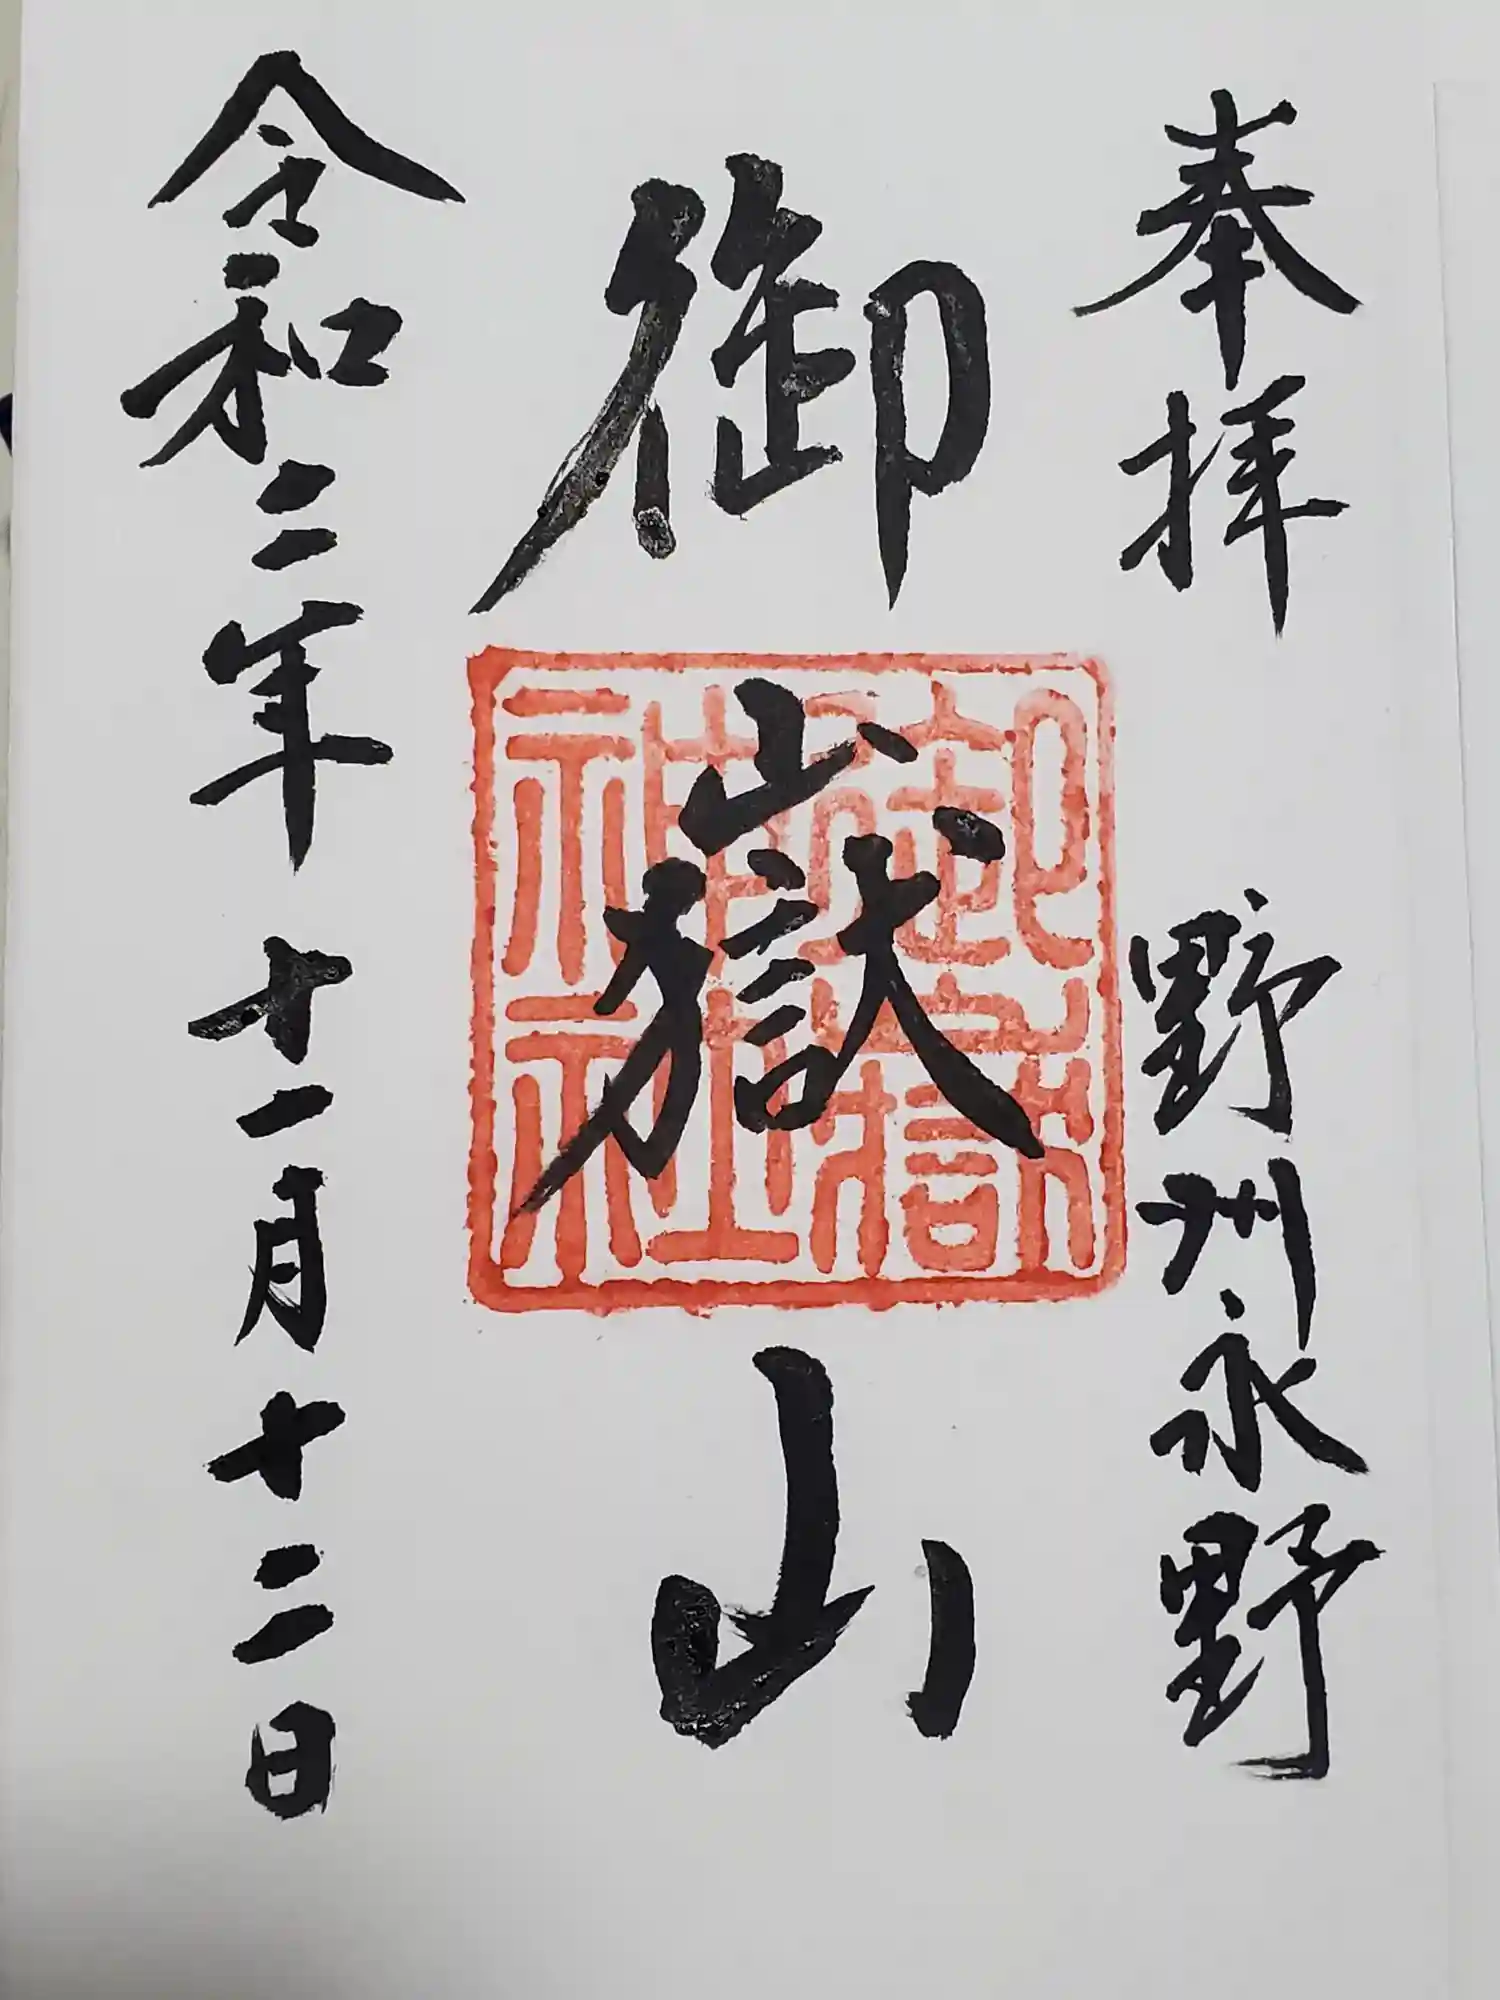 奉拝 野州永野
御嶽山
御嶽神社
令和二年十一月十二日